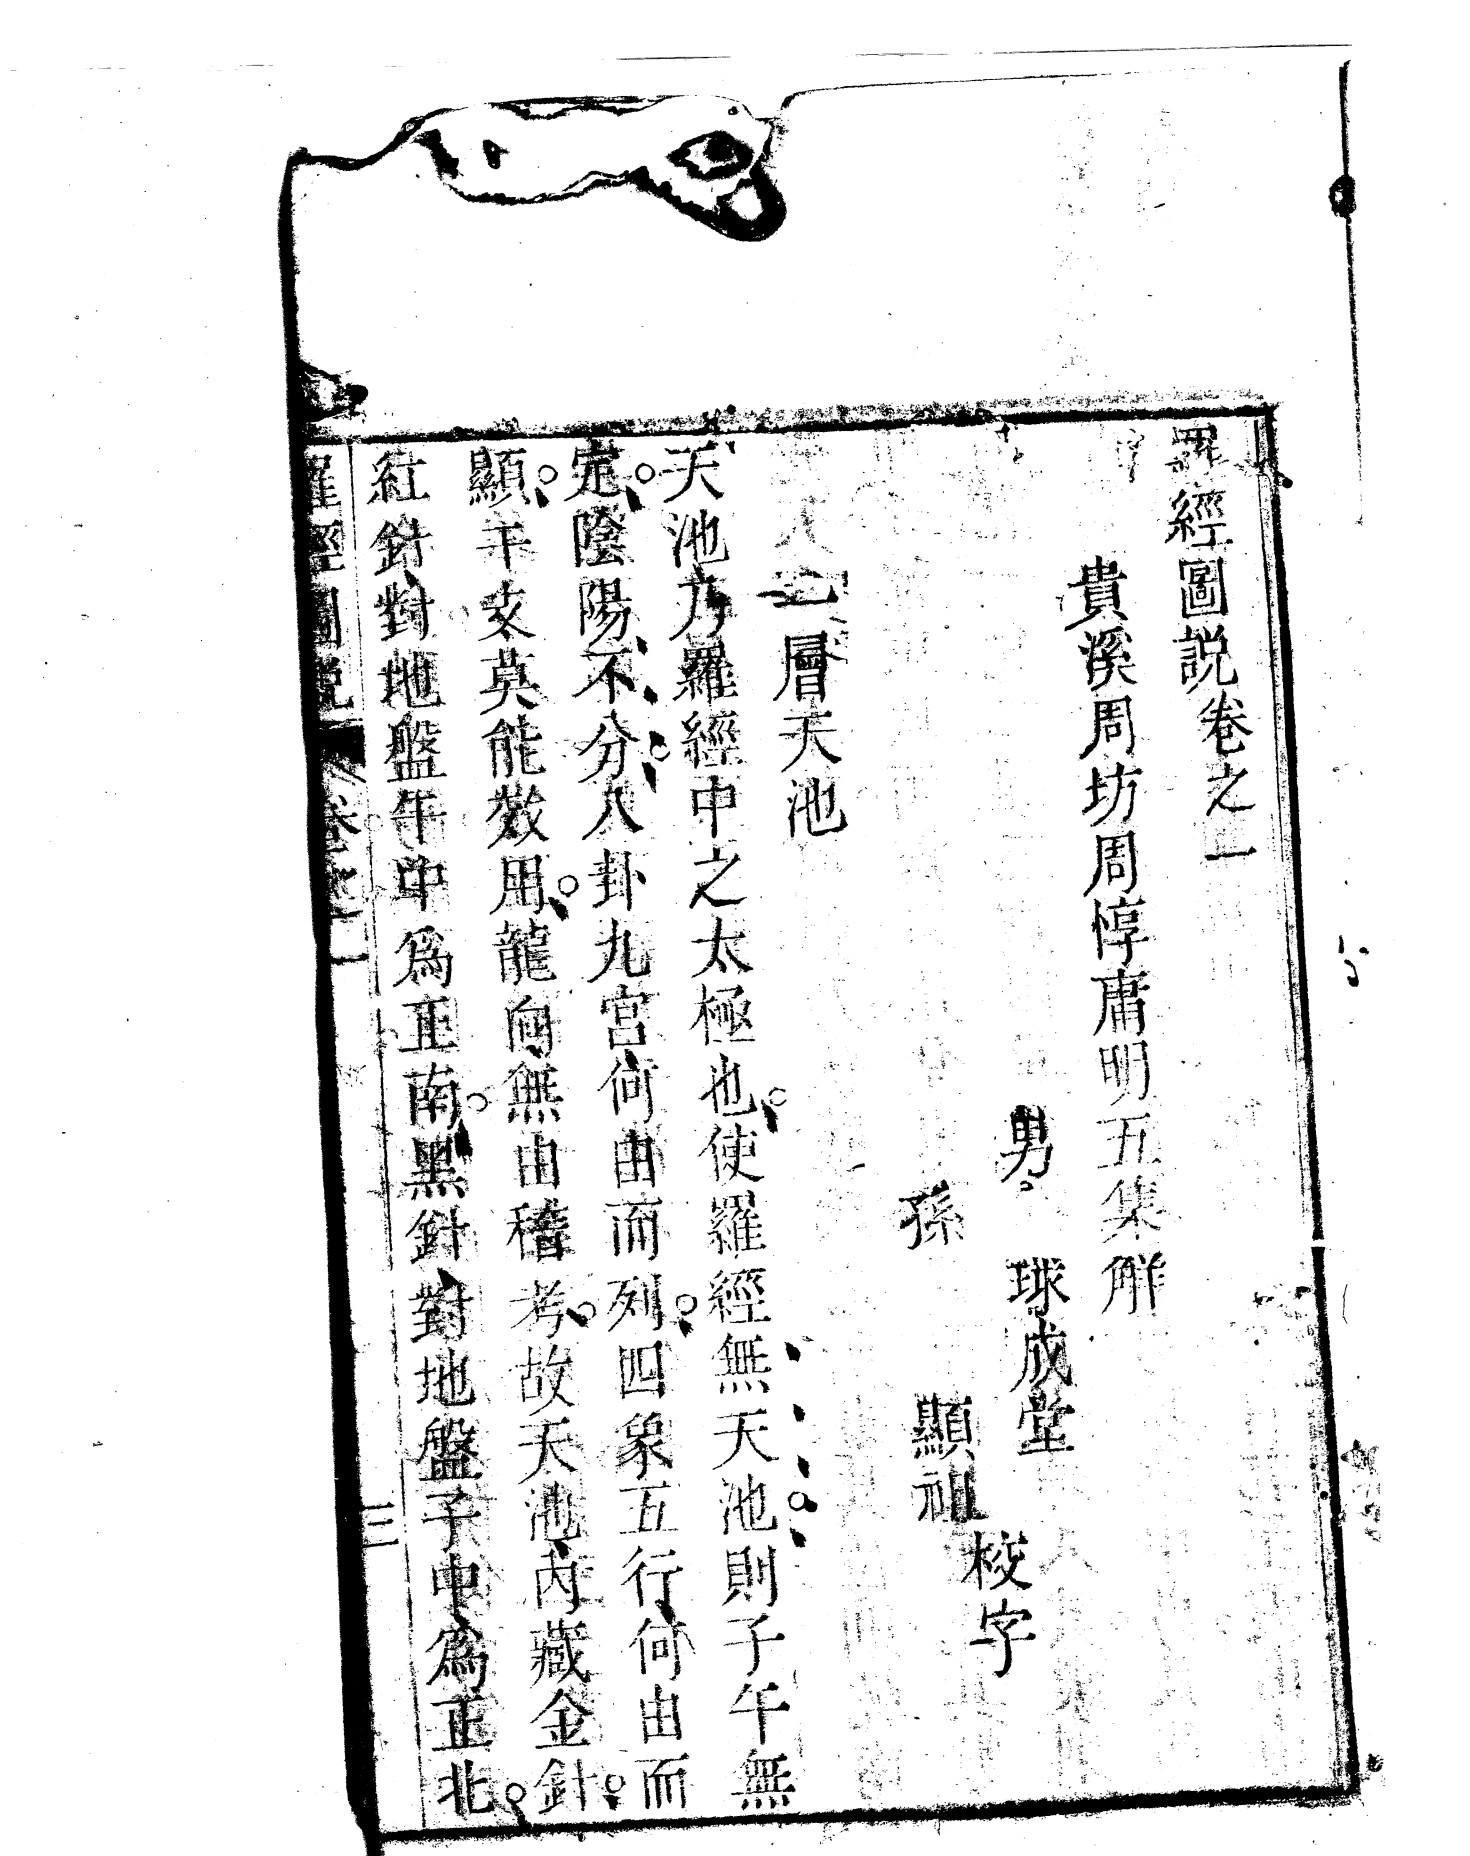 羅經圖説卷之一
貴溪周坊周惇庸明五集解
男 球成堂
孫 顯祖
校字
一層天池
天池乃羅經中之太極也使羅經無天池則子午無
定陰陽不分八卦九宮何由而列四象五行何由而
顯干支莫能效用龍向無由稽考故天池內藏金針
紅針對地盤午中爲正南黑針對地盤子中爲正北
羅經圖説 卷之一 三